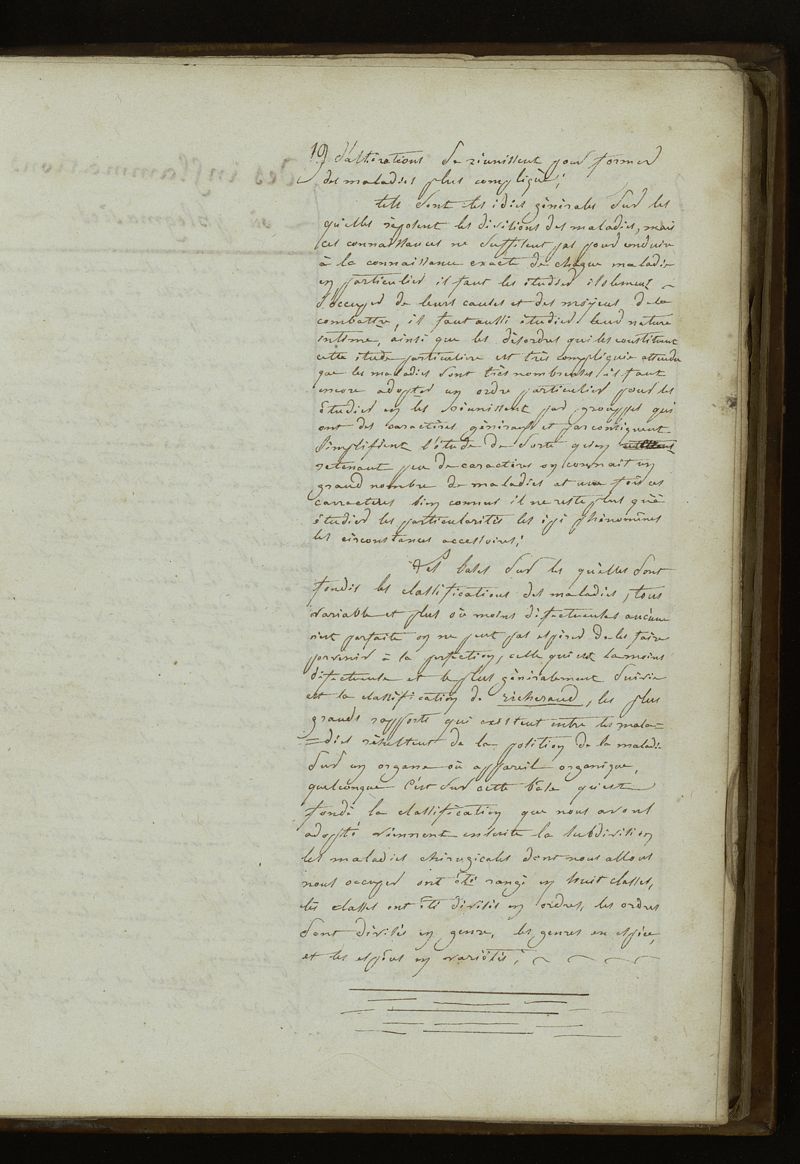 19) d'altérations se réunissent pour former
des maladies plus compliqué;
tels sont les idées générales sur les
qu'elles reposent les divisions des maladies, mais
ces connaissances ne suffisent pas pour conduire
à la connaissance exacte de chaque maladie
en particulier il faut les étudier isolement
s'occuper de leurs causes et des moyens de la
combattre, il faut aussi étudier leur nature
intime, ainsi que les désordres qui les constituent
cette étude particulière est très compliquée attendu
que les maladies sont très nombreuses il faut
encore adopter un ordre particulier pour les
étudier en les réunissent par grouppes qui
ont des caractères généraux et par conséquent
simplifient l'étude de sorte qu'en
retenant peu de caractères on connait un
grand nombre de maladies et une fois ces
carractères bien connus il ne reste plus qu'à
étudier les particularités les phénomènes
les circonstances accessoires;
Les bases sur les qu'elles sont
fondés les classifications des maladies, tous
variable et plus où moins défectueuses aucune
n'est parfaite on ne peut pas espérer de les faire
parvenir à la perfection, celle qui est la moins
défectueuse et le plus généralement suivie
est la classification de richerand, les plus
grands rapports qui existent entre les mala=
=dies résultent de la position de la maladie
sur un organe où appareil organique,
quelconque c'est sur cette base qu'est
fondé la classification que nous avons
adopté viennent ensuite la subdivision
les maladies chirugicales dont nous allons
nous occuper ont été rangé en huit classes,
les classes ont été divisés en ordres, les ordres
sont divisés en genre, les genres en espèce,
et les espèces en variétés;
des inflammations
où phlegmasies